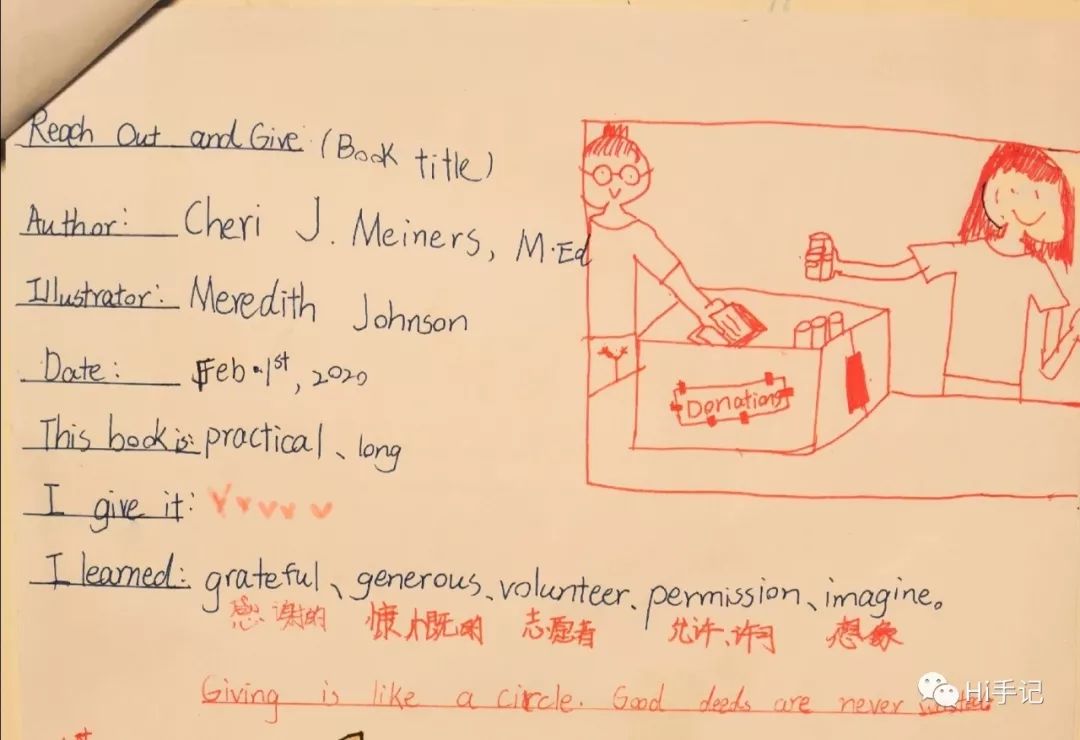 Reach Out and Give (Book title)
Author: Cheri J. Meiners, M.Ed
Illustrator: Meredith Johnson
Date: Feb.1st, 2020
This book is: practical、long
I give it:
I learned: grateful、generous、volunteer、permission、imagine。
感谢的 慷慨的 志愿者 允许、许可 想象
Giving is like a circle. Good deeds are never
Donation
Hi手记
st